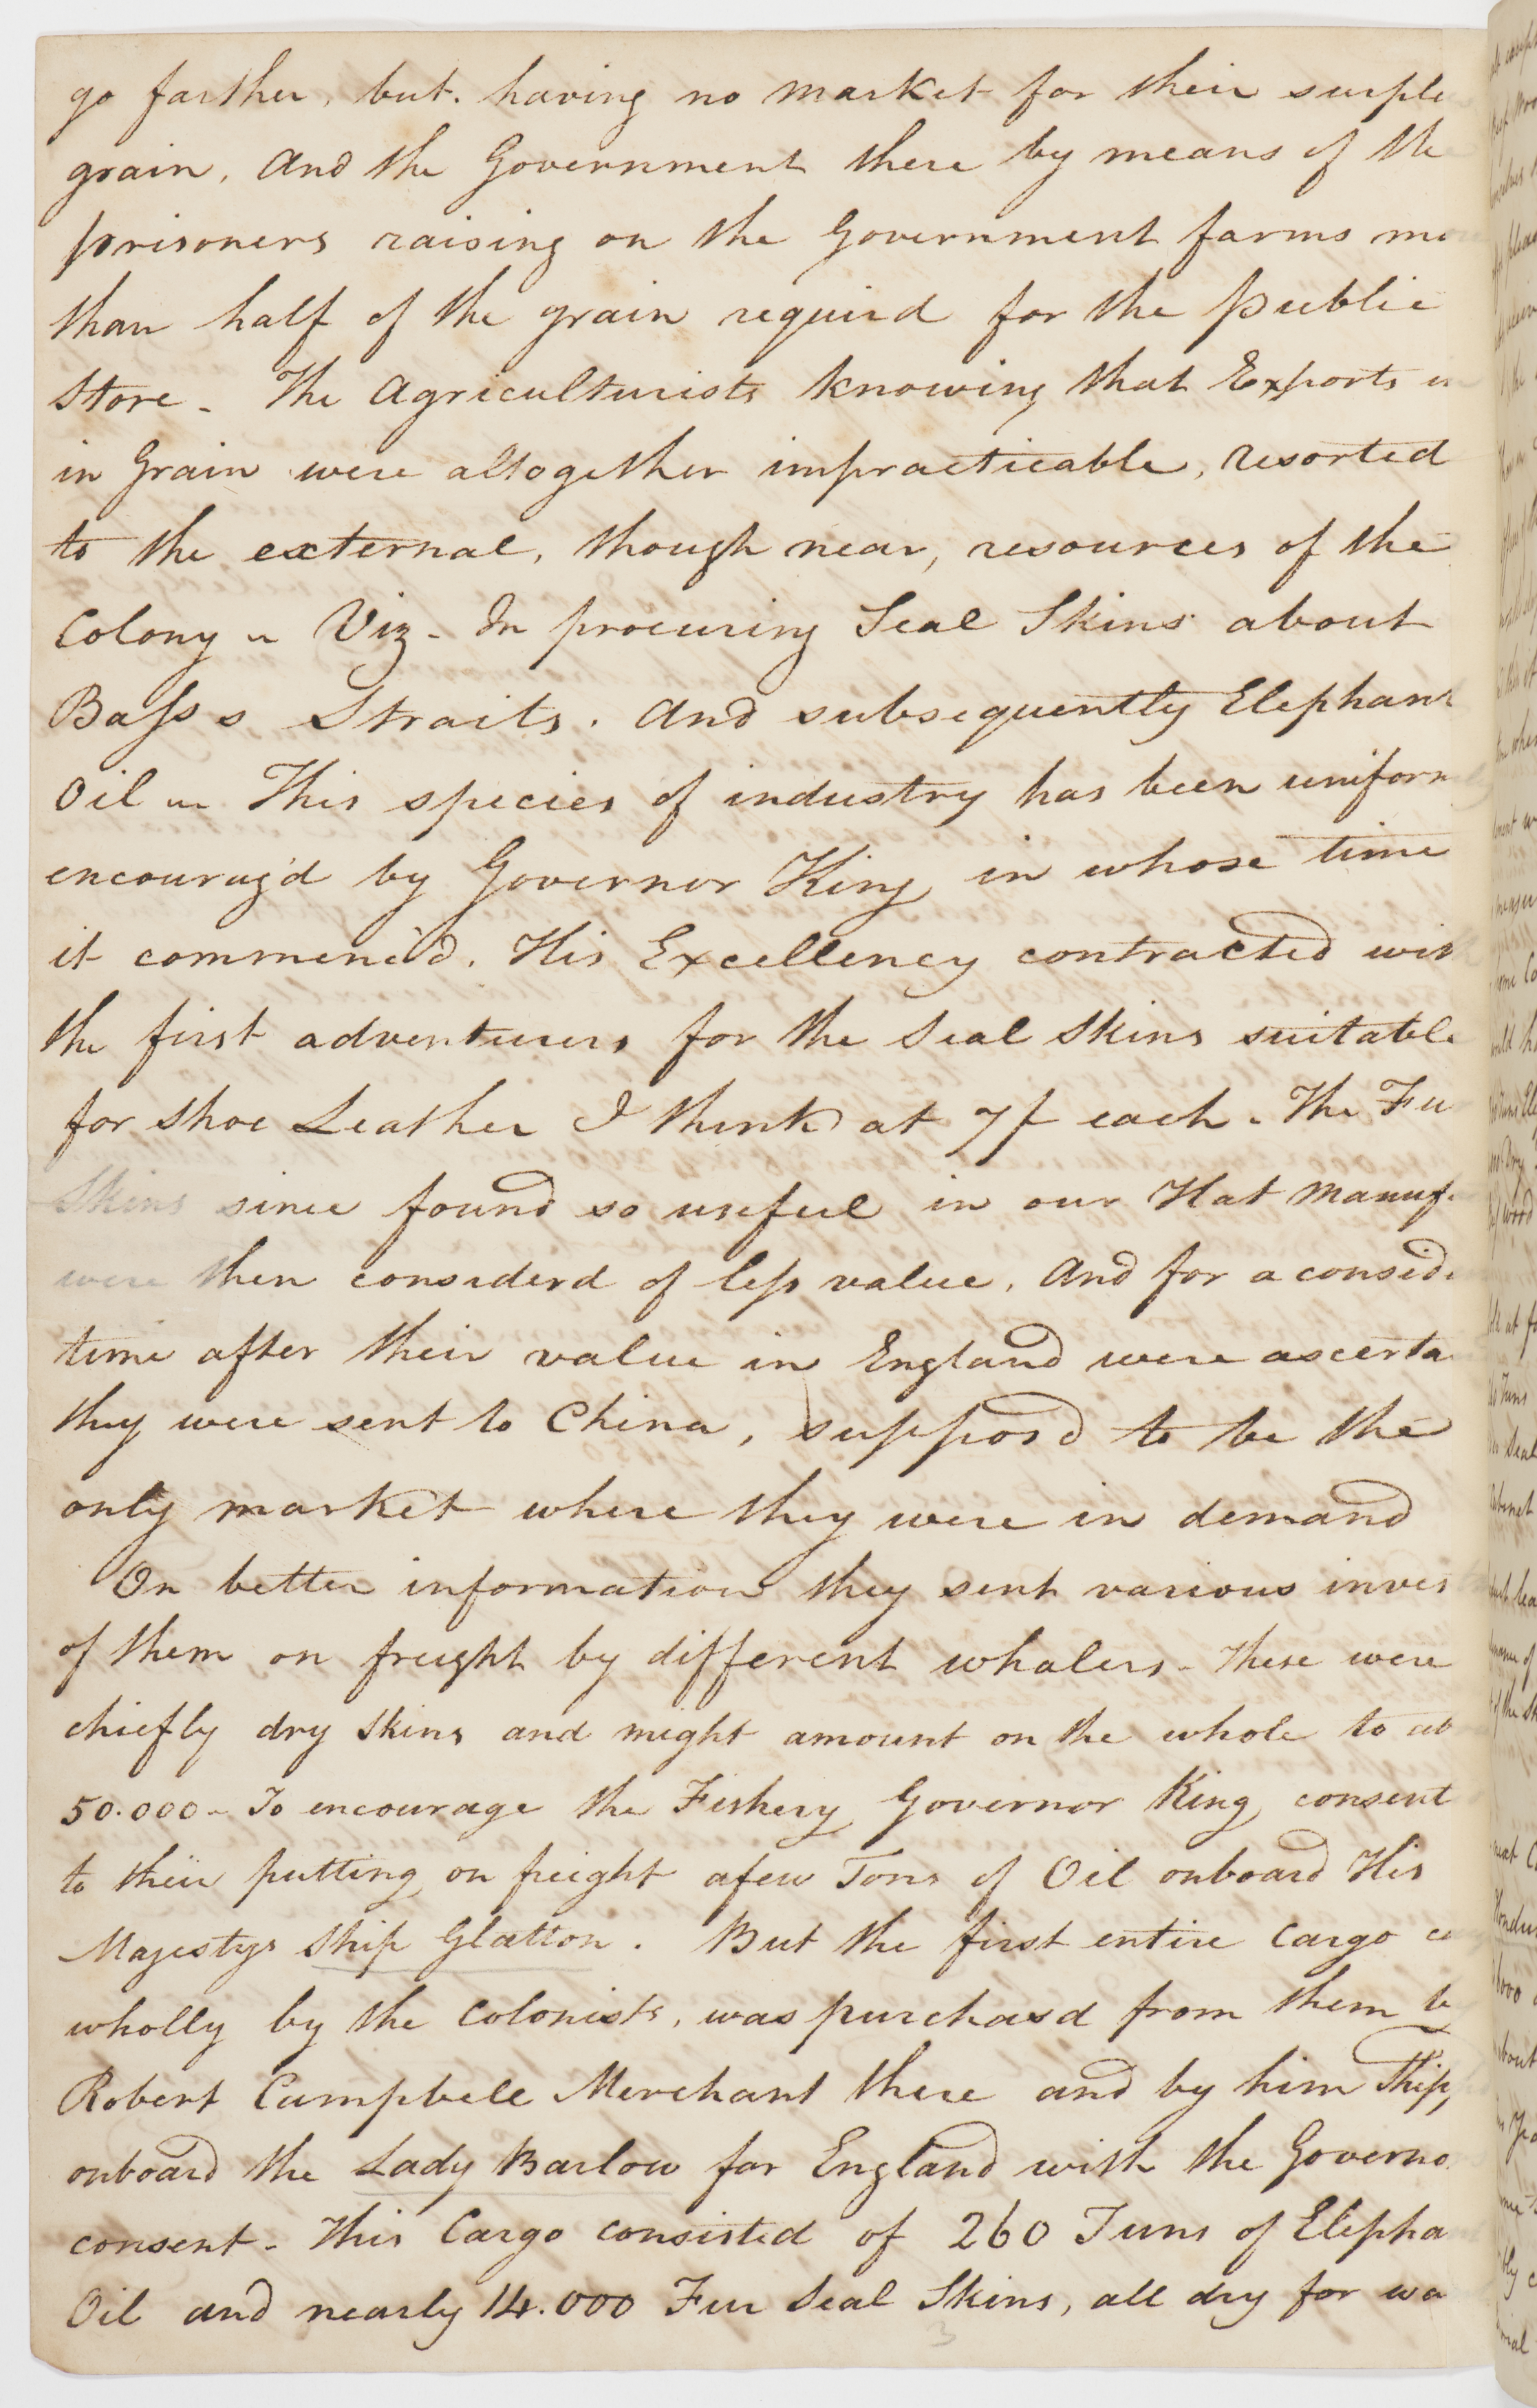 go farther, but. having no market for their surpl
grain, And the Government there by means of the
prisoners raising on the Government farms mo
than half of the grain requird for the public
Store - The Agriculturists knowing that Exports
in Grain were altogether impracticable, resorted
to the external, though near, resources of the
Colony - Viz - In procuring Seal Skins about
Bass s Straits. And subsequently Elephant
Oil - This species of industry has been uniform
encourag'd by Governor King in whose time
it commenc'd. His Excellency contracted wit
the first adventurers for the Seal Skins suitable
for Shoe Leather I think at 7/ each - The Fu
Skins since found so useful in our Hat Manuf
were then considerd of less value. And for a consid
time after their value in England were ascerta
they were sent to China, supposd to be the
only market where they were in demand
On better information they sent various inves
of them on freight by different whalers - These were
chiefly dry skins and might amount on the whole to ab
50.000 - To encourage the Fishery Governor King consent
to their putting on freight a few Tons of Oil onboard His
Majestys Ship Glatton. But the first entire Cargo co
wholly by the Colonists, was purchasd from them b
Robert Campbell Merchant there and by him Ship
onboard the Lady Barlow for England with the Governo
consent - This Cargo consisted of 260 Tuns of Elepha
Oil and nearly 14.000 Fur Seal Skins, all dry for wa
3